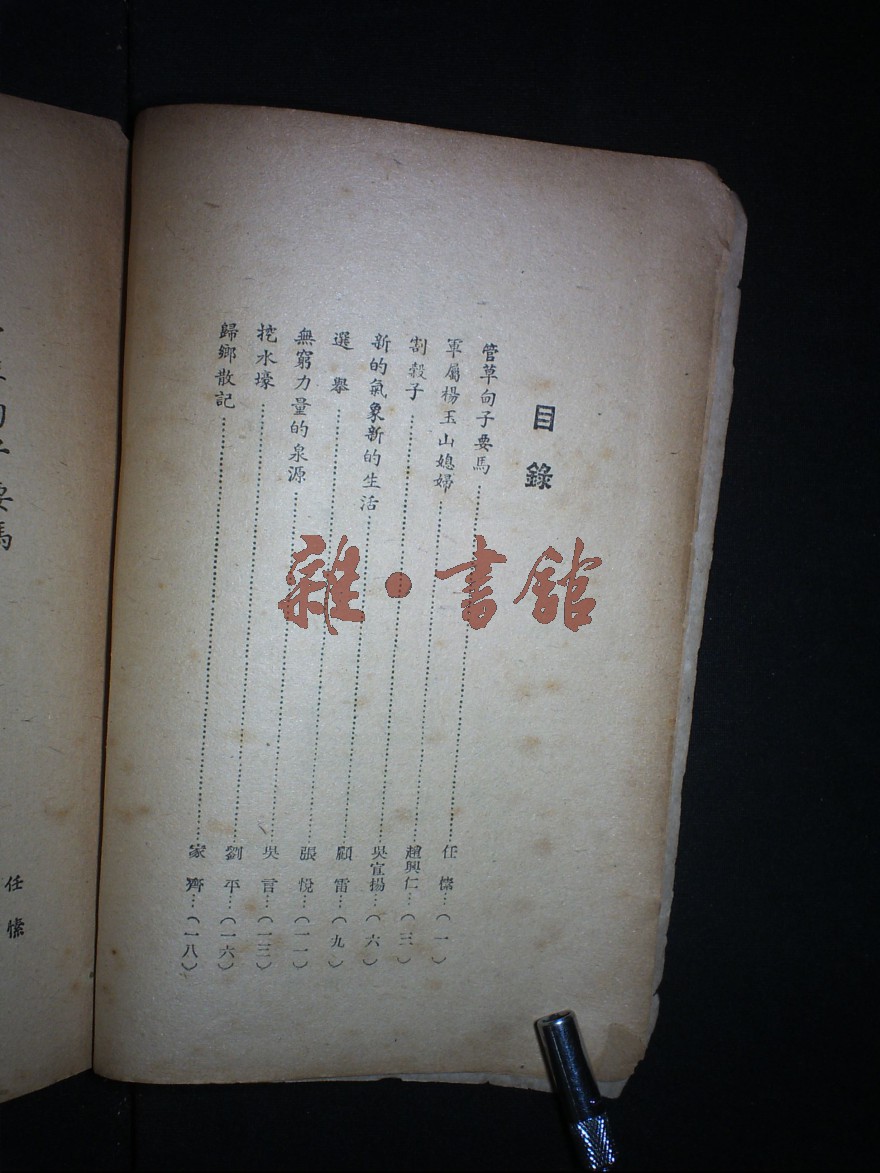 目錄
管草句子要馬……任愫…(一)
軍屬楊玉山媳婦……趙興仁…(三)
割穀子……吳宣揚…(六)
新的氣象新的生活……顧雷…(九)
選舉……張悅…(一一)
無窮力量的泉源……吳言…(一三)
挖水壕……劉平…(一六)
歸鄉散記……家齊…(一八)
句子要馬
任愫
雜·書館